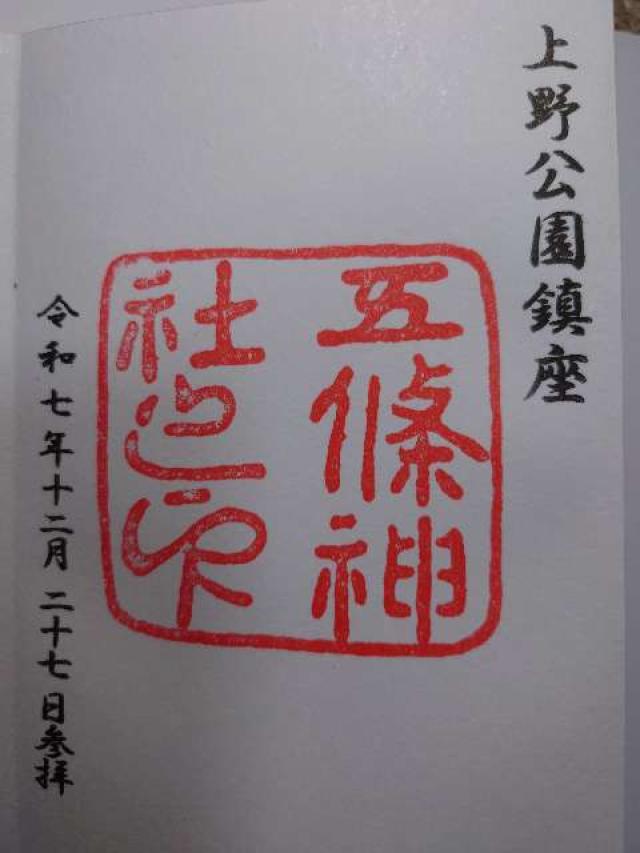 上野公園鎮座
五條神
社之印
令和七年十二月二十七日参拝